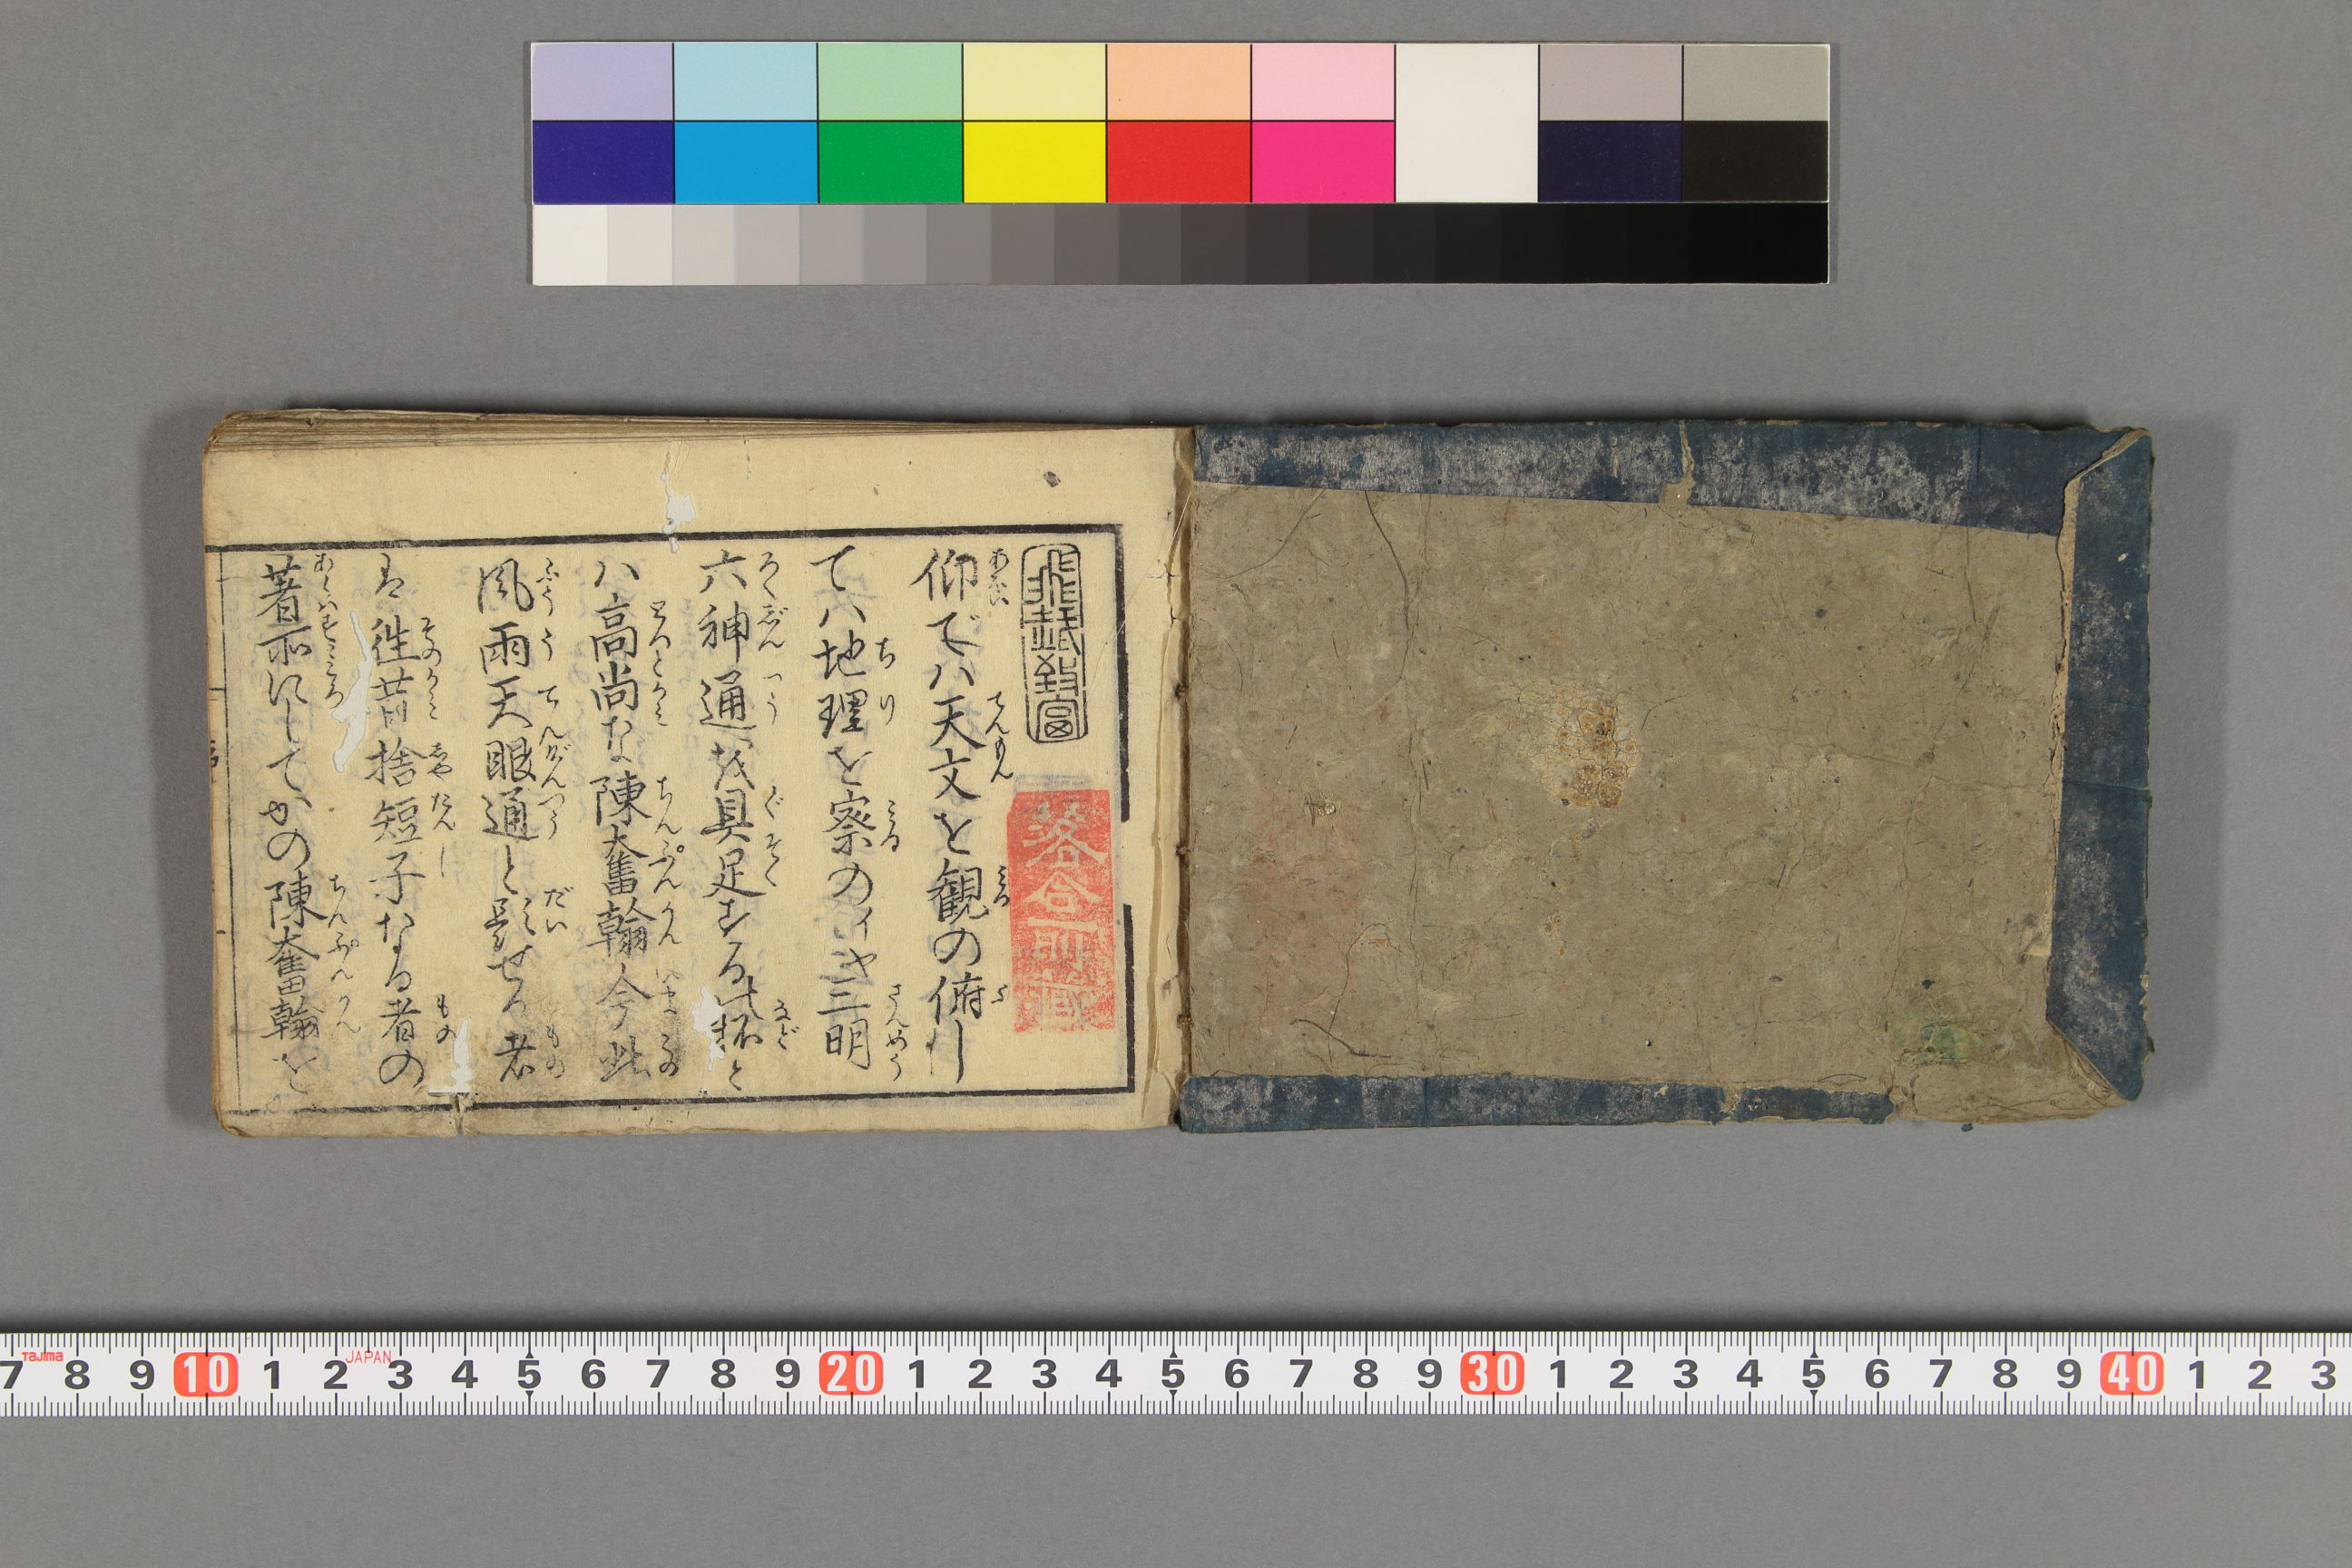 仰てハ天文を観の俯し
てハ地理を察のイヤ三明
六神通を具足する杯と
ハ高尚な陳奮翰今此
風雨天眼通と題せる者
は往昔捨短子なる者の
著所にしてかの陳奮翰を
7 8 9 10 1 2 3 4 5 6 7 8 9 20 1 2 3 4 5 6 7 8 9 30 1 2 3 4 5 6 7 8 9 40 1 2 3
Tajima JAPAN